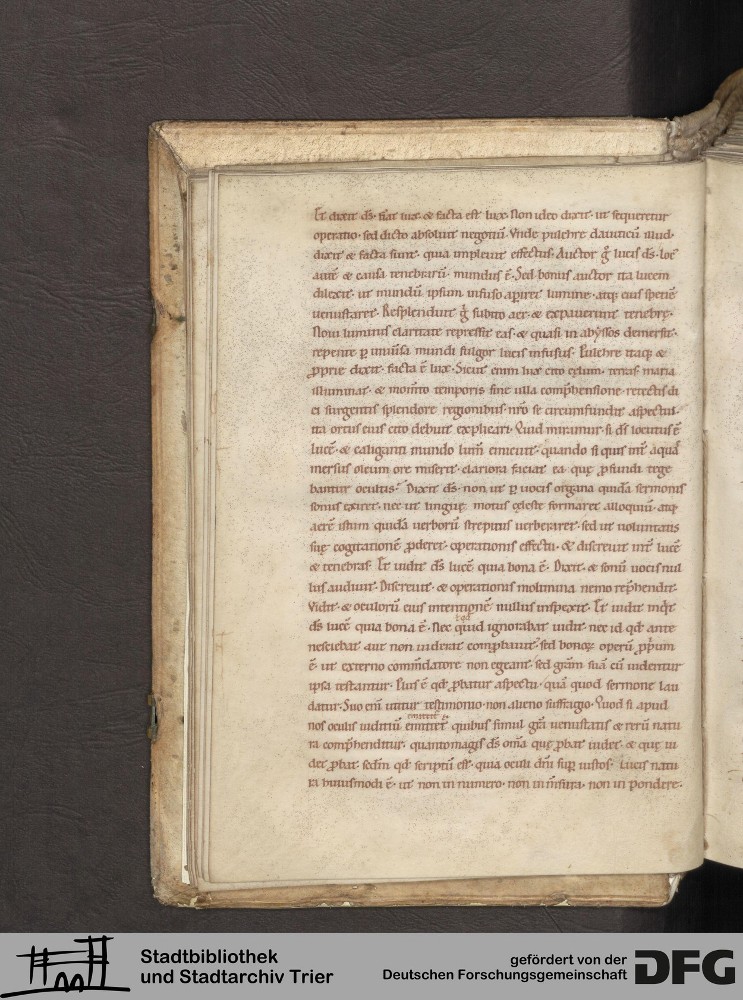 Et dixit ds̄. fiat lux. & facta est lux. Non ideo dixit. ut sequeretur
operatio. sed dicto absoluit negotiū. Vnde pulchre dauiticū illud.
dixit & facta sunt. quia impleuit effectus. Auctor g̊ lucis ds̄. loc᷒
autē & causa tenebrarū. mundus ē. Sed bonus auctor ita lucem
dilexit. ut mundū ipsum infuso apiret lumine. atq; eius spetiē
uenustaret. Resplenduit g̊ subito aer. & expauerunt tenebrę.
Noui luminis claritate repressit eas. & quasi in abyssos demersit.
repente p uniūsa mundi fulgor lucis infusus. Pulchre itaq; &
pprie dixit. facta ē lux. Sicut enim lux cito cęlum. terras maria
illuminat. & momto temporis sine ulla comphensione. retectis di
ei surgentis splendore regionibus. nr̄o se circumfundit aspectui.
ita ortus eius cito debuit explicari. Quid miramur. si ds̄ locutus ē
lucē. & caliganti mundo lum̄ emicuit. quando si quis int̄ aquā
mersus oleum ore miserit. clariora faciat ea. quę pfundi tege
bantur occultis. Dixit ds̄. non ut p uocis organa quidā sermonis
sonus exiret. nec ut linguę motus cęleste formaret alloquiū. atq;
aerē istum quidā uerborū strepitus uerberaret. sed ut uoluntatis
suę cogitationē pderet. operationis effectu. & discreuit int̄ lucē
& tenebras. Et uidit ds̄ lucē quia bona ē. Dixit. & sonū uocis nul
lus audiuit. Discreuit. & operationis molimina nemo rephendit.
Vidit. & oculorū eius intentionē nullus inspexit. Et uidit inqt
ds̄ lucē quia bona ē. Nec quid ignorabat uidit. nec id qd ante
nesciebat aut non uiderat comprobauit. sed bonoꝝ operū ppium
ē. ut externo commdatore non egeant. sed gr̄am suā cū uidentur
ipsa testantur. Plus ē qd pbatur aspectu. quā quod sermone lau
datur. Suo eni utitur testimonio. non alieno suffragio. Quod si apud
nos oculis iuditiū emittet quibus simul gr̄a uenustatis & rerū natu
ra comphenditur. quantomagis ds̄ om̄a quę pbat uidet. & quę ui
det pbat. sedm qd scriptū est. quia oculi dn̄i sup iustos. Lucis natu
ra huiusmodi ē. ut non in numero. non in m̄sura. non in pondere.
Stadtbibliothek
und Stadtarchiv Trier
gefördert von der
Deutschen Forschungsgemeinschaft
DFG